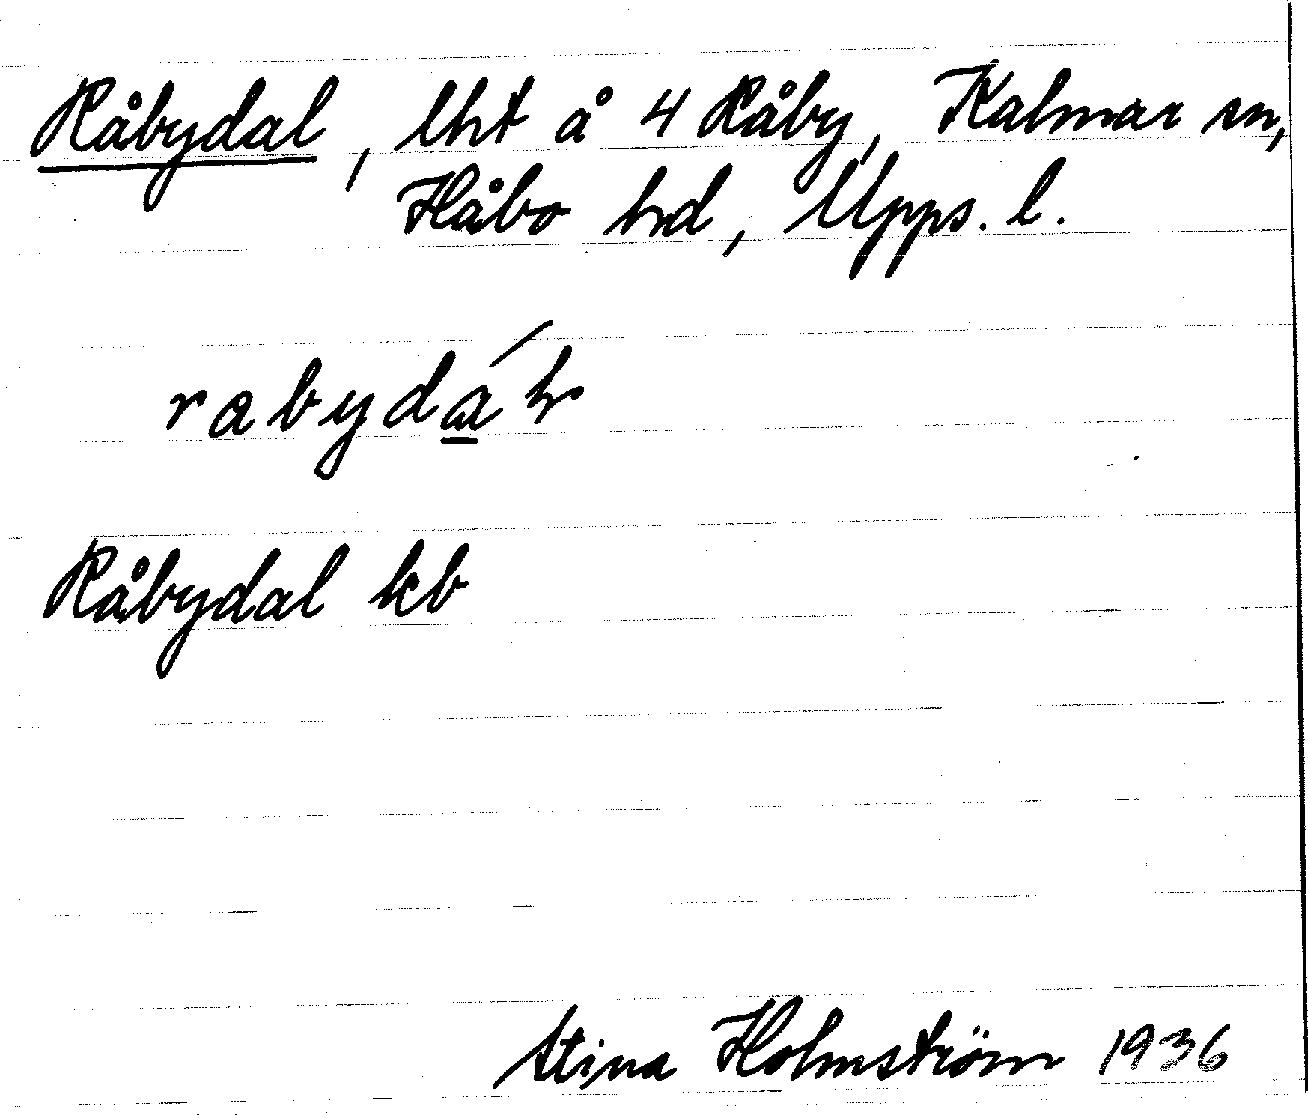 Råbydal, lht å 4 Råby, Kalmar sn,
Håbo hd, Upps. l.
Råbydal kb
Stina Holmström 1936